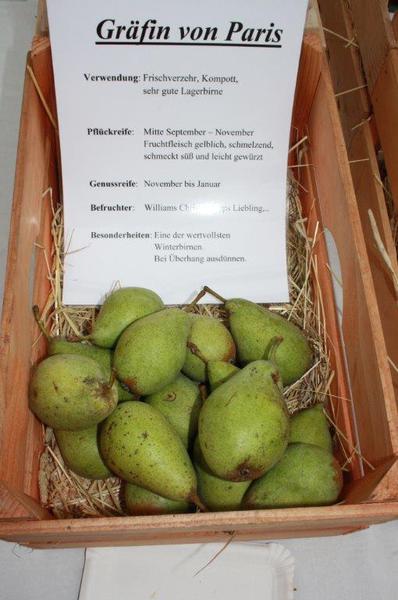 Gräfin von Paris
Verwendung: Frischverzehr, Kompott,
sehr gute Lagerbirne
Pflückreife: Mitte September – November
Fruchtfleisch gelblich, schmelzend,
schmeckt süß und leicht gewürzt
Genussreife: November bis Januar
Befruchter: Williams Liebling,..
Besonderheiten: Eine der wertvollsten
Winterbirnen.
Bei Überhang ausdünnen.